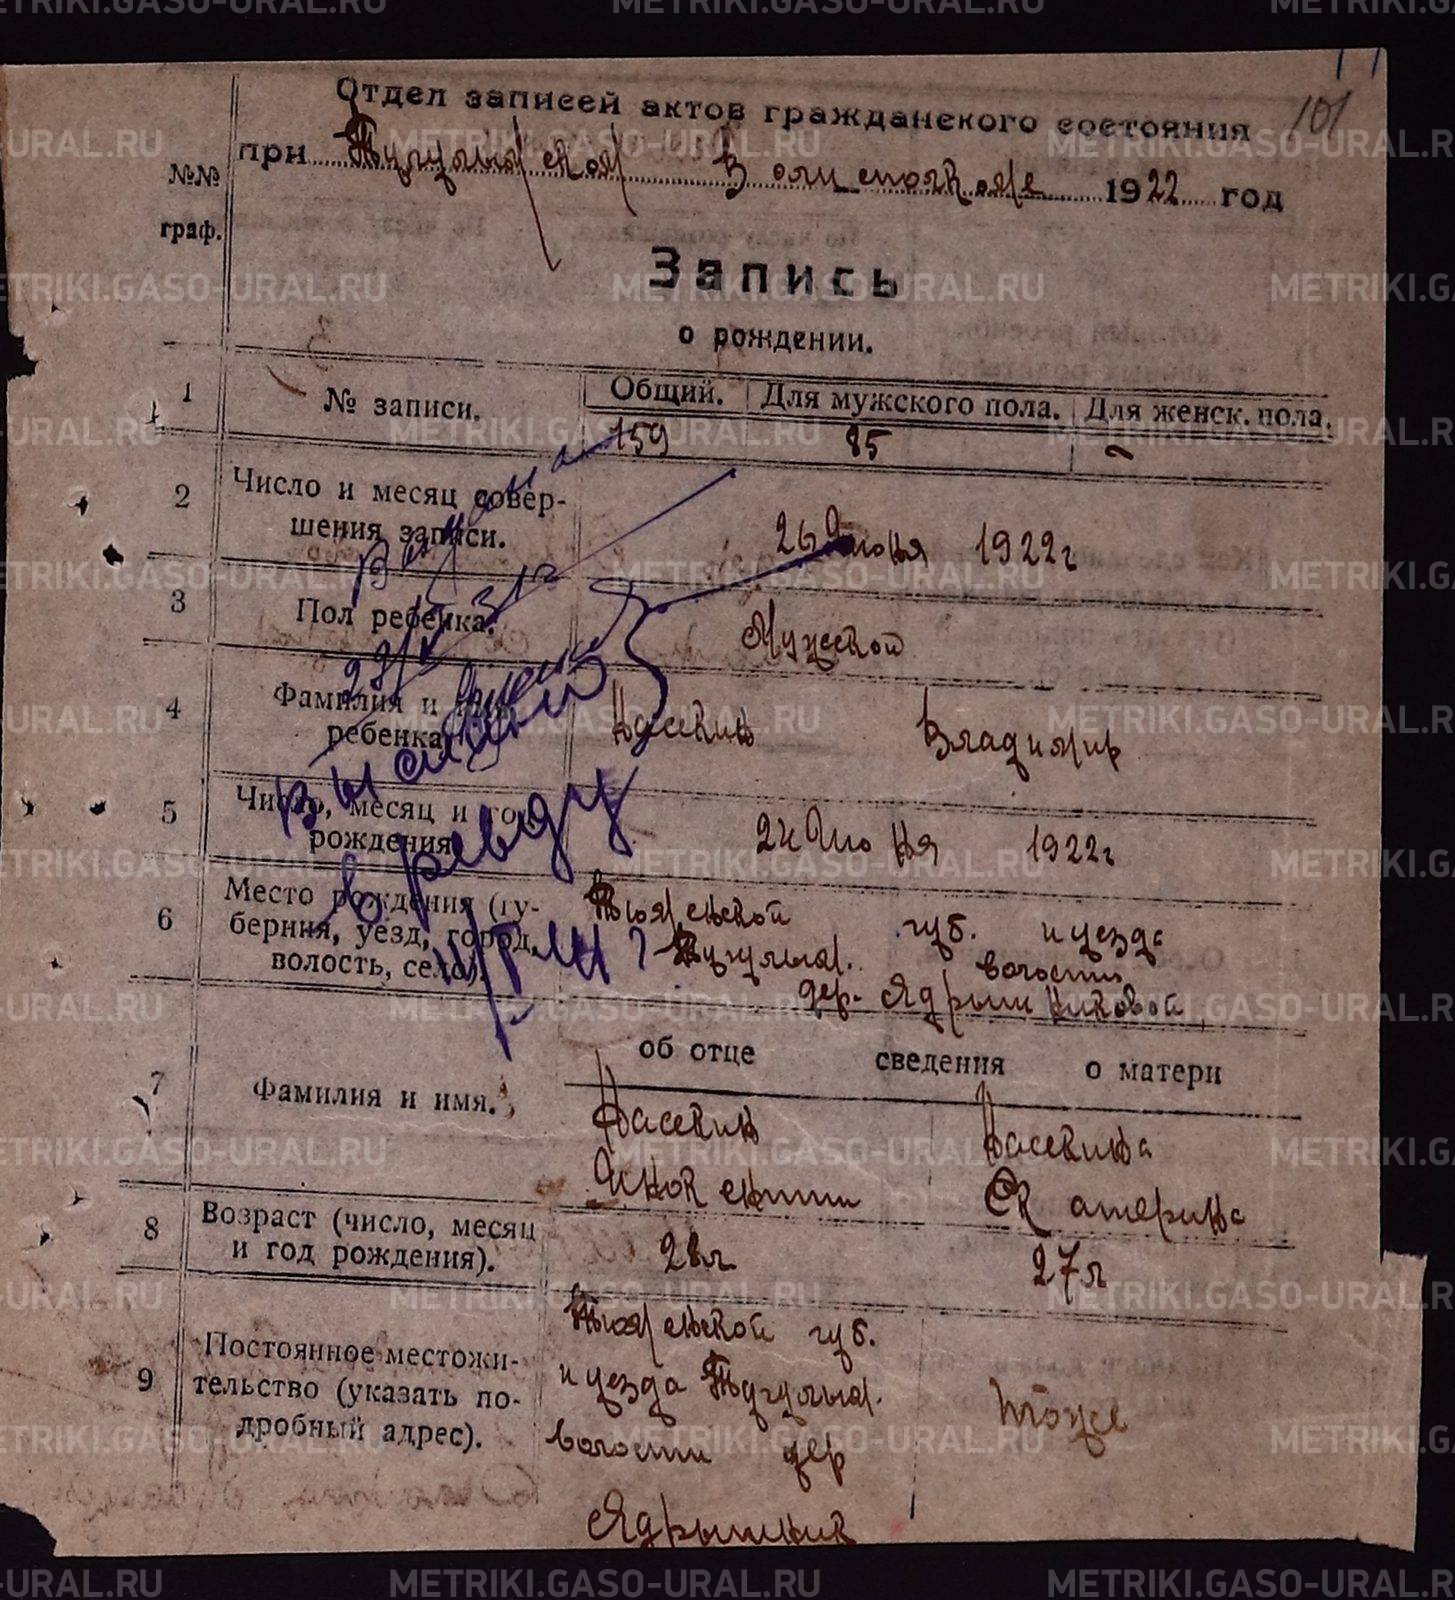 101
Отдел записей актов гражданского состояния
при Тугулымской Волисполкоме 1922 год
№№ граф.
Запись
о рождении.
1 № записи. Общий. Для мужского пола. Для женск. пола.
159 85 -
2 Число и месяц совер-
шения записи. 26 Июня 1922г
3 Пол ребенка. Мужской
4 Фамилия и имя
ребенка Насекин Владимир
5 Число, месяц и год
рождения 24 Июня 1922г
6 Место рождения (гу-
берния, уезд, город,
волость, село). Тюменской губ. и уезда
Тугулым. волости
дер. Ядрышниковой
об отце сведения о матери
7 Фамилия и имя. Насекин Насекина
Инокентий Екатерина
8 Возраст (число, месяц
и год рождения). 28л 27л
9 Постоянное местожи-
тельство (указать по-
дробный адрес). Тюменской губ.
и уезда Тугулым.
волости дер
Ядрышник
тоже
выслано
в Ревду
METRIKI.GASO-URAL.RU